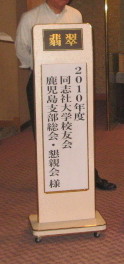 翡翠
2010年度
同志社大学校友会
鹿児島支部総会・懇親会 様